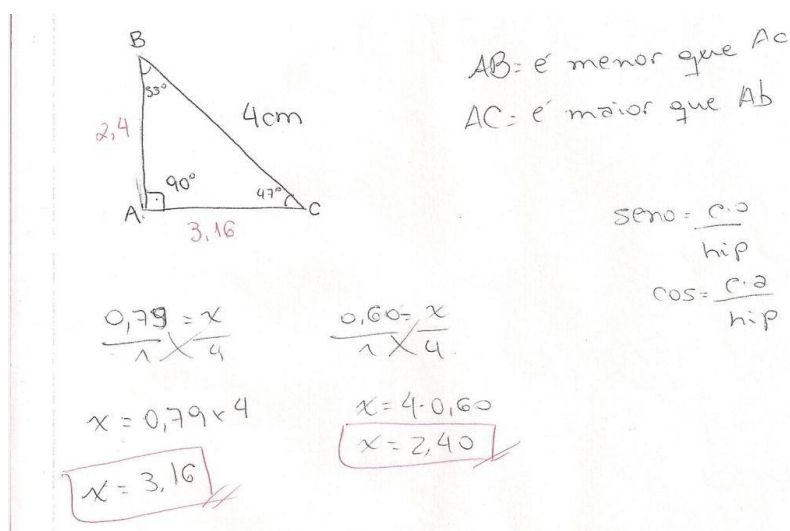 B
53°
2,4
4cm
90°
47°
A
C
3,16
AB= é menor que Ac
AC= é maior que Ab
seno= c.o
hip
cos= c.a
hip
0,79 = x
1 4
x = 0,79 x 4
x = 3,16
0,60= x
1 4
x = 4·0,60
x = 2,40